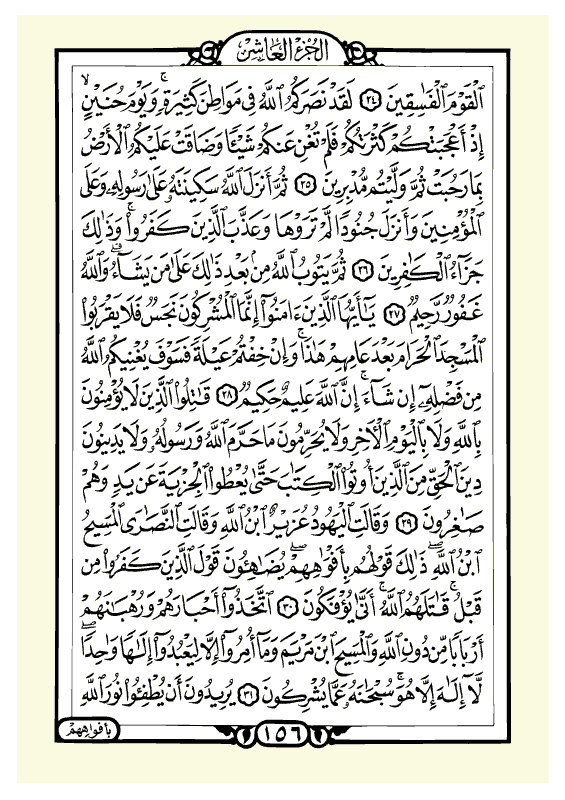 الجزء العاشر
ٱلۡقَوۡمَ ٱلۡفَٰسِقِينَ ٢٤ لَقَدۡ نَصَرَكُمُ ٱللَّهُ فِي مَوَاطِنَ كَثِيرَةٖ وَيَوۡمَ حُنَيۡنٍ
إِذۡ أَعۡجَبَتۡكُمۡ كَثۡرَتُكُمۡ فَلَمۡ تُغۡنِ عَنكُمۡ شَيۡـٔٗا وَضَاقَتۡ عَلَيۡكُمُ ٱلۡأَرۡضُ
بِمَا رَحُبَتۡ ثُمَّ وَلَّيۡتُم مُّدۡبِرِينَ ٢٥ ثُمَّ أَنزَلَ ٱللَّهُ سَكِينَتَهُۥ عَلَىٰ رَسُولِهِۦ وَعَلَى
ٱلۡمُؤۡمِنِينَ وَأَنزَلَ جُنُودٗا لَّمۡ تَرَوۡهَا وَعَذَّبَ ٱلَّذِينَ كَفَرُواْۚ وَذَٰلِكَ
جَزَآءُ ٱلۡكَٰفِرِينَ ٢٦ ثُمَّ يَتُوبُ ٱللَّهُ مِنۢ بَعۡدِ ذَٰلِكَ عَلَىٰ مَن يَشَآءُۗ وَٱللَّهُ
غَفُورٞ رَّحِيمٞ ٢٧ يَٰٓأَيُّهَا ٱلَّذِينَ ءَامَنُوٓاْ إِنَّمَا ٱلۡمُشۡرِكُونَ نَجَسٞ فَلَا يَقۡرَبُواْ
ٱلۡمَسۡجِدَ ٱلۡحَرَامَ بَعۡدَ عَامِهِمۡ هَٰذَاۚ وَإِنۡ خِفۡتُمۡ عَيۡلَةٗ فَسَوۡفَ يُغۡنِيكُمُ ٱللَّهُ
مِن فَضۡلِهِۦٓ إِن شَآءَۚ إِنَّ ٱللَّهَ عَلِيمٌ حَكِيمٞ ٢٨ قَٰتِلُواْ ٱلَّذِينَ لَا يُؤۡمِنُونَ
بِٱللَّهِ وَلَا بِٱلۡيَوۡمِ ٱلۡأٓخِرِ وَلَا يُحَرِّمُونَ مَا حَرَّمَ ٱللَّهُ وَرَسُولُهُۥ وَلَا يَدِينُونَ
دِينَ ٱلۡحَقِّ مِنَ ٱلَّذِينَ أُوتُواْ ٱلۡكِتَٰبَ حَتَّىٰ يُعۡطُواْ ٱلۡجِزۡيَةَ عَن يَدٖ وَهُمۡ
صَٰغِرُونَ ٢٩ وَقَالَتِ ٱلۡيَهُودُ عُزَيۡرٌ ٱبۡنُ ٱللَّهِ وَقَالَتِ ٱلنَّصَٰرَى ٱلۡمَسِيحُ
ٱبۡنُ ٱللَّهِۖ ذَٰلِكَ قَوۡلُهُم بِأَفۡوَٰهِهِمۡۖ يُضَٰهِـُٔونَ قَوۡلَ ٱلَّذِينَ كَفَرُواْ مِن
قَبۡلُۚ قَٰتَلَهُمُ ٱللَّهُۖ أَنَّىٰ يُؤۡفَكُونَ ٣٠ ٱتَّخَذُوٓاْ أَحۡبَارَهُمۡ وَرُهۡبَٰنَهُمۡ
أَرۡبَابٗا مِّن دُونِ ٱللَّهِ وَٱلۡمَسِيحَ ٱبۡنَ مَرۡيَمَ وَمَآ أُمِرُوٓاْ إِلَّا لِيَعۡبُدُوٓاْ إِلَٰهٗا وَٰحِدٗاۖ
لَّآ إِلَٰهَ إِلَّا هُوَۚ سُبۡحَٰنَهُۥ عَمَّا يُشۡرِكُونَ ٣١ يُرِيدُونَ أَن يُطۡفِـُٔواْ نُورَ ٱللَّهِ
١٥٦
بأفواههم